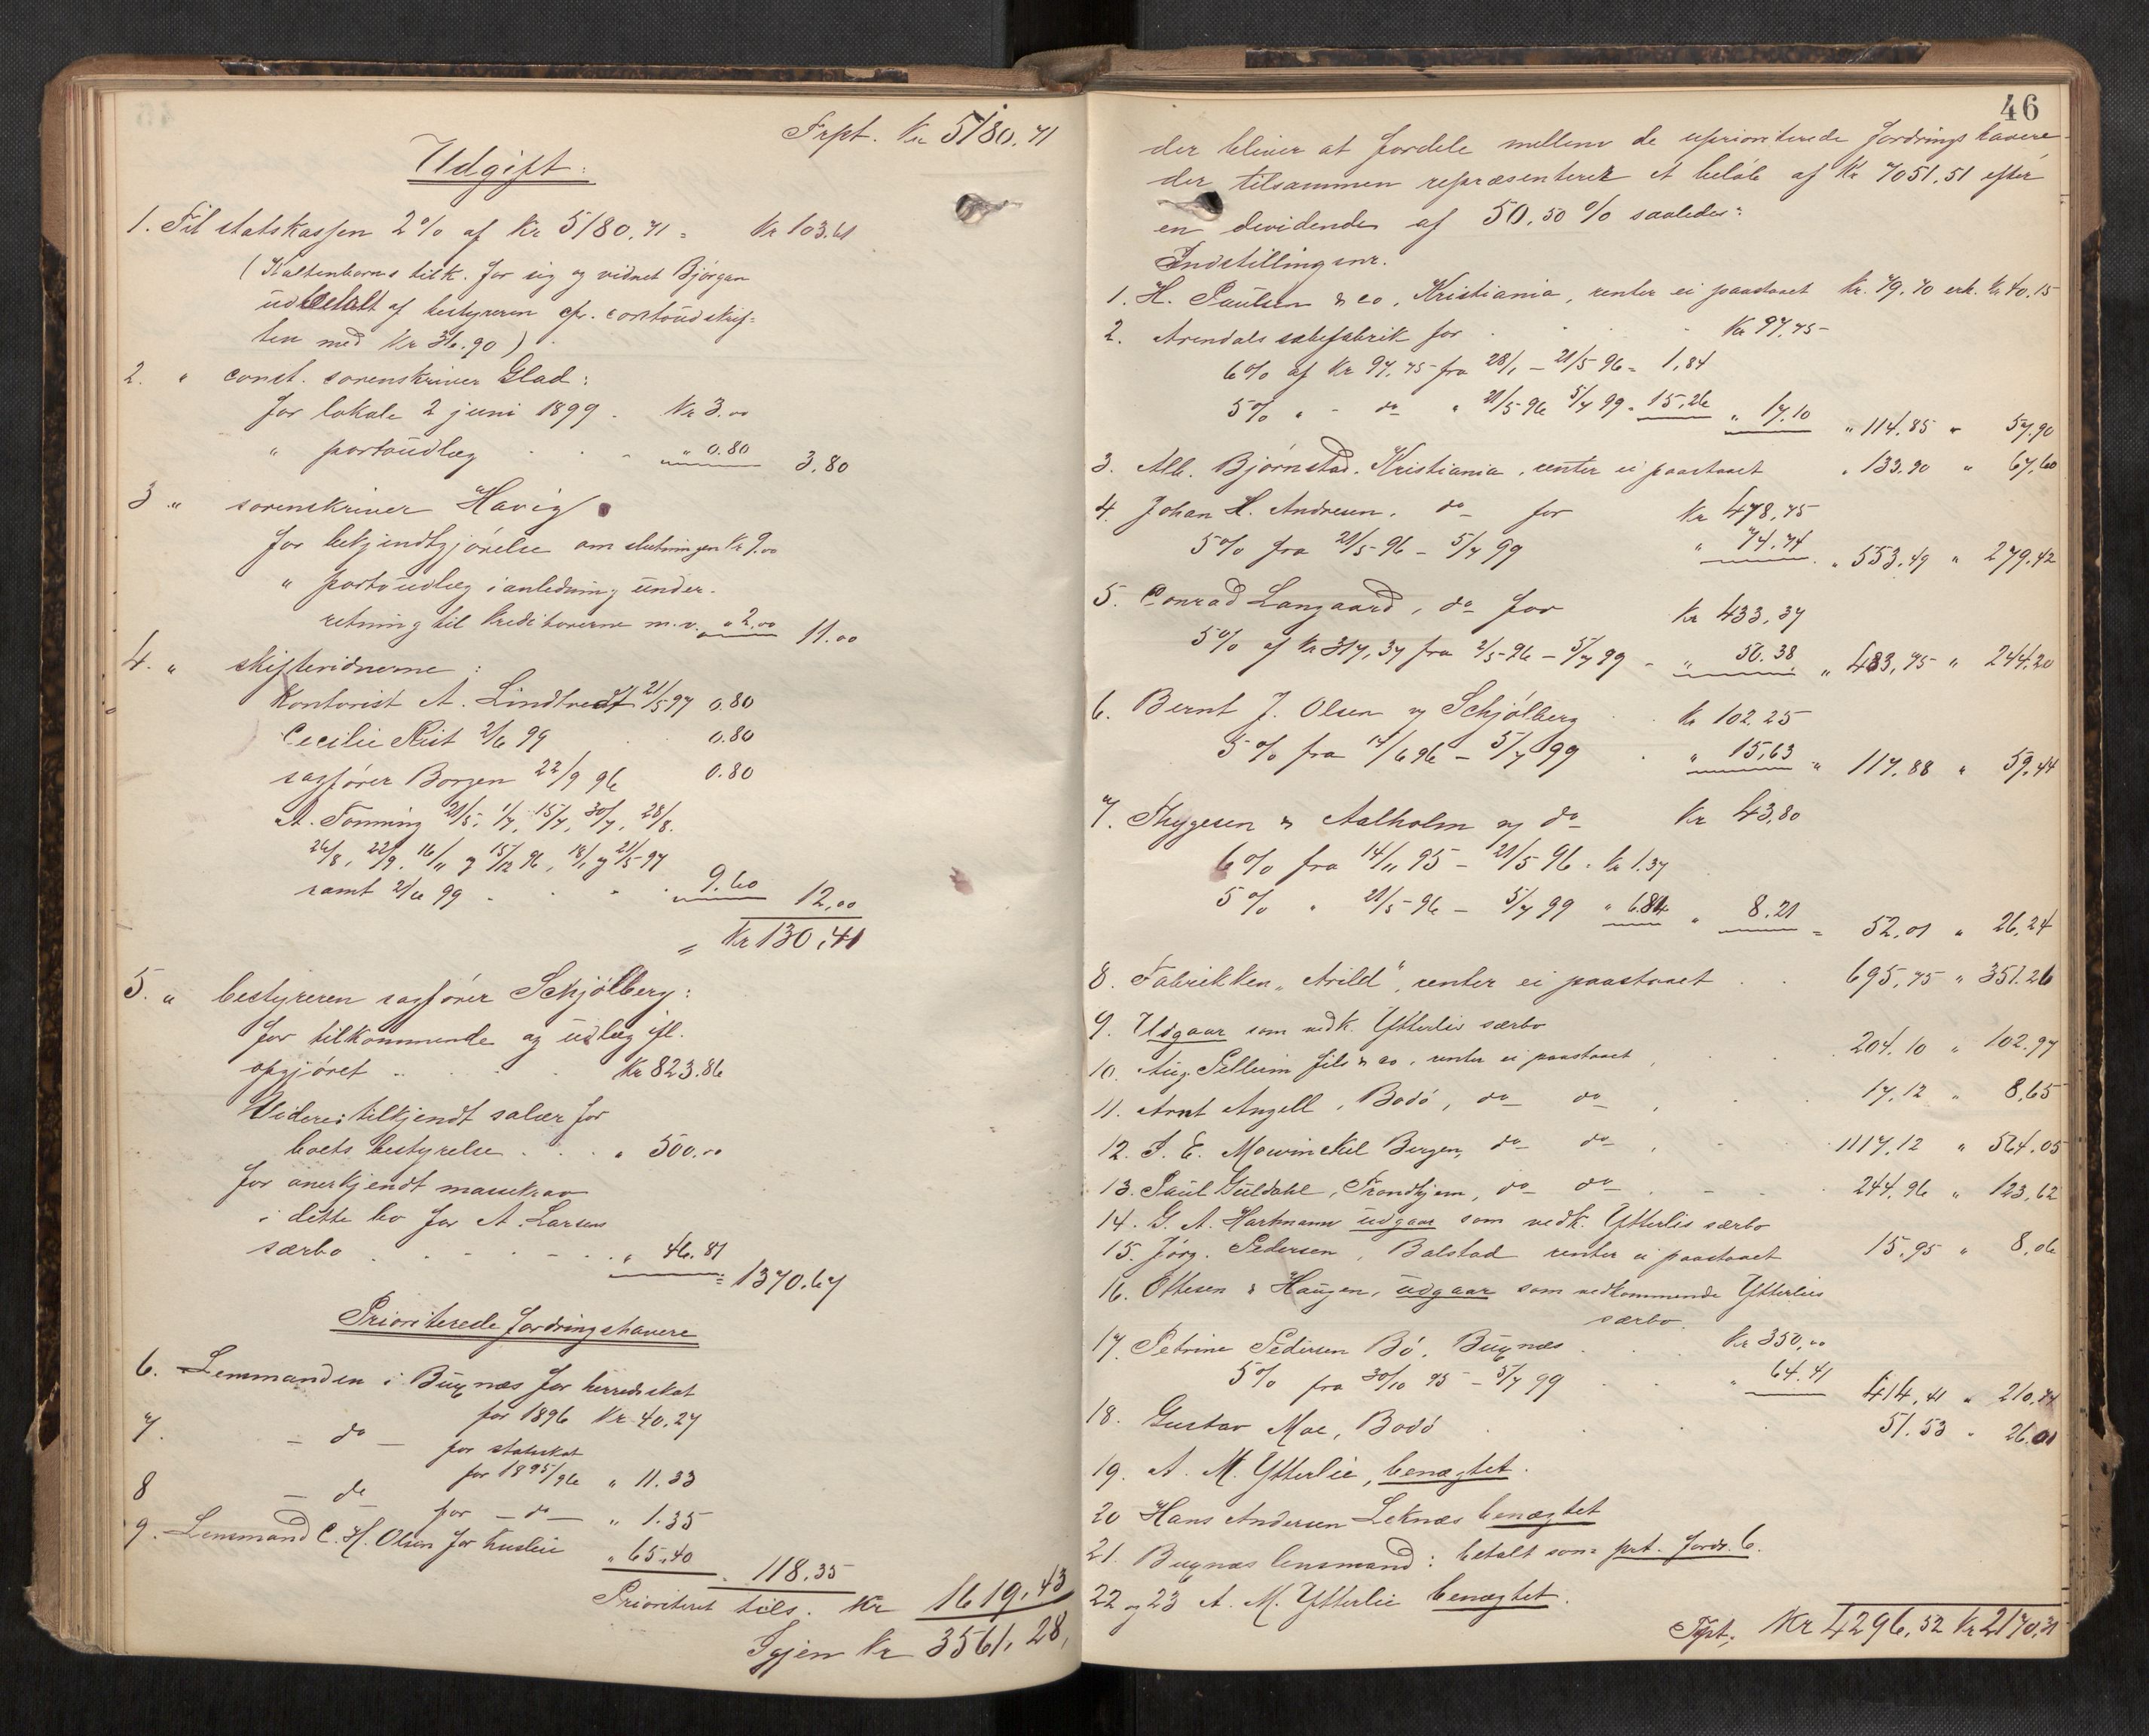 Frpt. Kr 5180.71
Udgift:
1. Til statskassen 2% af Kr 5180.71 = Kr 103.61
(Kaltenborns tilk. for sig og vidnet Bjørgan
udbetalt af bestyreren cfr. contoudskrif-
ten med Kr 36.90)
2. " const. sorenskriver Glad:
for lokale 2 juni 1899 . Kr 3.00
" portoudlæg . . - " 0.80 3.80
3 " sorenskriver Havig
for bekjendtgjørelse om slutningen Kr 9.00
" portoudlæg i anledning under-
retning til kreditorerne m.v. " 2.00 11.00
4. " skiftevidnerne:
Kontorist A. Lindtvedt 21/5 97 0.80
Cecilie Rist 2/6 99 0.80
sagfører Borgen 22/9 96 0.80
A. Tonning 21/5, 1/7, 15/7, 30/7, 28/8.
26/8, 22/9, 16/11 og 15/12 96, 18/1 og 21/5 97
samt 2/6 99 . . . 9.60 12.00
= Kr 130.41
5. " bestyreren sagfører Schjølberg:
for tilkommende og udlæg ifl.
opgjøret . . . Kr 823.86
Videre: tilkjendt salær for
boets bestyrelse . . . " 500.00
for anerkjendt massekrav
i dette bo for A. Larsens
særbo . . . . . " 46.81 = 1370.67
Prioriterede fordringshavere
6. Lensmanden i Buxnæs for herredsskat
for 1896 Kr 40.27
7. - do - for statsskat
for 1895/96 " 11.33
8 - do - for - do - " 1.35
9. Lensmand C. H. Olsen for husleie " 65.40 . 118.35
Prioriteret tils. Kr 1619.43
Igjen Kr 3561.28.
46
der bliver at fordele mellem de uprioriterede fordringshavere
der tilsammen repræsenterer et beløb af Kr 7051.51 efter
en dividende af 50.50% saaledes:
Indstillingsnr.
1. H. Paulsen & co, Kristiania, renter ei paastaaet Kr. 79.70 erh. Kr 40.15
2. Arendals sæbefabrik for . . . Kr 97.75
6% af Kr 97.75 fra 28/1 - 21/5 96 = 1.84
5% " - do " 21/5 96 5/7 99 " 15.26 " 17.10 " 114.85 " 57.90
3. Alb. Bjørnstad. Kristiania, renter ei paastaaet " 133.90 " 67.60
4. Johan H. Andresen, do for Kr 478.75
5% fra 21/5 96 - 5/7 99 " 74.74 . " 553.49 " 279.42
5. Conrad Langaard, do for Kr 433.37
5% af Kr 317.37 fra 2/5 96 - 5/7 99 - " 50.38 " 483.75 " 244.20
6. Bernt J. Olsen v/ Schjølberg . . Kr 102.25
5% fra 14/6 96 - 5/7 99 . " 15.63 " 117.88 " 59.44
7. Thygesen & Aalholm v/ do Kr 43.80
6% fra 14/11 95 - 21/5 96 . Kr 1.37
5% " 21/5 96 - 5/7 99 " 6.84 " 8.21 = 52.01 " 26.24
8. Fabrikken "Arild", renter ei paastaaet . . 695.75 " 351.26
9. Udgaar som vedk. Ytterlis særbo
10. Aug. Pellerin fils & co, renter ei paastaaet . . . 204.10 " 102.97
11. Arnt Angell, Bodø, do do . . . 17.12 " 8.65
12. J. E. Mowinckel Bergen, do do . . . 1117.12 " 564.05
13. Paul Guldahl, Trondhjem, do do . - . 244.96 " 123.62
14. G. A. Hartmann udgaar som vedk. Ytterlis særbo
15. Jørg. Pedersen, Balstad renter ei paastaaet 15.95 " 8.06
16. Ottesen & Haugen, udgaar som vedkommende Ytterlies
særbo.
17. Petrine Pedersen Bø, Buxnæs . . Kr 350.00
5% fra 30/10 95 - 5/7 99 . . " 64.41 414.41 " 210.74
18. Gustav Moe, Bodø . . . . 51.53 " 26.01
19. A. M. Ytterlie, benægtet.
20 Hans Andersen Leknæs benægtet
21. Buxnæs lensmand: betalt som prt. fordr. 6.
22 og 23 A. M. Ytterlie benægtet.
Trpt. Kr 4296.52 Kr 2170.31